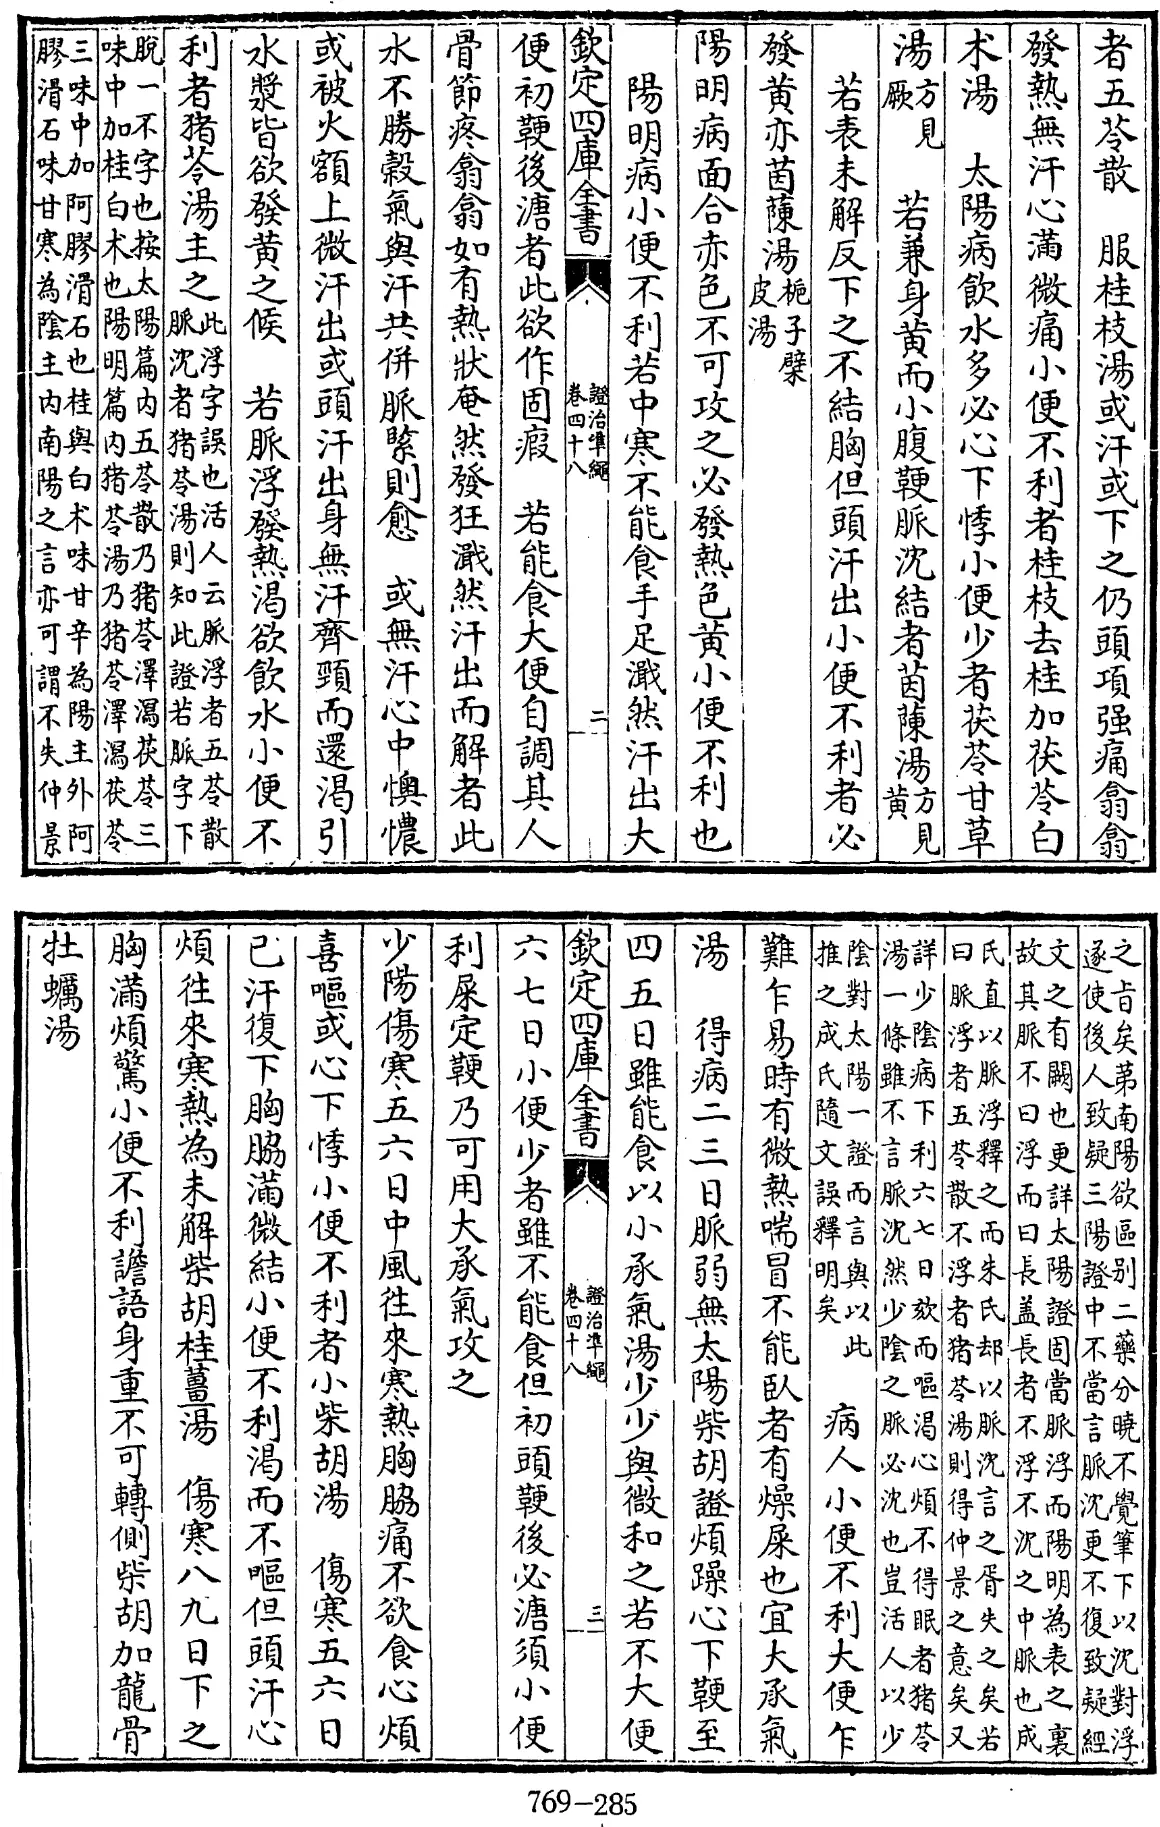 者五苓散　服桂枝湯或汗或下之仍頭項强痛翕翕
發熱無汗心滿微痛小便不利者桂枝去桂加茯苓白
术湯　太陽病飲水多必心下悸小便少者茯苓甘草
湯方見厥　若兼身黄而小腹鞕脈沈結者茵蔯湯方見黄
若表未解反下之不結胸但頭汗出小便不利者必
發黄亦茵蔯湯梔子檗皮湯
陽明病面合赤色不可攻之必發熱色黄小便不利也
陽明病小便不利若中寒不能食手足濈然汗出大
欽定四庫全書　證治準繩卷四十八　二
便初鞕後溏者此欲作固瘕　若能食大便自調其人
骨節疼翕翕如有熱狀奄然發狂濈然汗出而解者此
水不勝穀氣與汗共併脈緊則愈　或無汗心中懊憹
或被火額上微汗出或頭汗出身無汗齊頸而還渴引
水漿皆欲發黄之候　若脈浮發熱渴欲飲水小便不
利者猪苓湯主之此浮字誤也活人云脈浮者五苓散
脈沈者猪苓湯則知此證若脈字下
脫一不字也按太陽篇内五苓散乃猪苓澤瀉茯苓三
味中加桂白术也陽明篇内猪苓湯乃猪苓澤瀉茯苓
三味中加阿膠滑石也桂與白术味甘辛為陽主外阿
膠滑石味甘寒為陰主内南陽之言亦可謂不失仲景
之旨矣第南陽欲區别二藥分曉不覺筆下以沈對浮
遂使後人致疑三陽證中不當言脈沈更不復致疑經
文之有闕也更詳太陽證固當脈浮而陽明為表之裏
故其脈不曰浮而曰長盖長者不浮不沈之中脈也成
氏直以脈浮釋之而朱氏却以脈沈言之胥失之矣若
曰脈浮者五苓散不浮者猪苓湯則得仲景之意矣又
詳少陰病下利六七日欬而嘔渴心煩不得眠者猪苓
湯一條雖不言脈沈然少陰之脈必沈也豈活人以少
陰對太陽一證而言與以此
推之成氏隨文誤釋明矣　病人小便不利大便乍
難乍易時有微熱喘冒不能臥者有燥屎也宜大承氣
湯　得病二三日脈弱無太陽柴胡證煩躁心下鞕至
四五日雖能食以小承氣湯少少與微和之若不大便
欽定四庫全書　證治準繩卷四十八　三
六七日小便少者雖不能食但初頭鞕後必溏須小便
利屎定鞕乃可用大承氣攻之
少陽傷寒五六日中風往來寒熱胸脇痛不欲食心煩
喜嘔或心下悸小便不利者小柴胡湯　傷寒五六日
已汗復下胸脇滿微結小便不利渴而不嘔但頭汗心
煩往來寒熱為未解柴胡桂薑湯　傷寒八九日下之
胸滿煩驚小便不利譫語身重不可轉側柴胡加龍骨
牡蠣湯
769-285